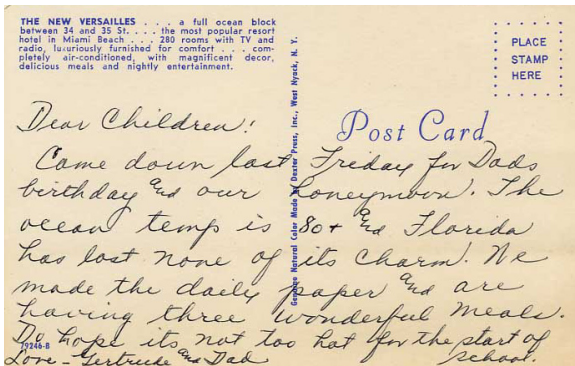 THE NEW VERSAILLES . . . a full ocean block
between 34 and 35 St. . . . the most popular resort
hotel in Miami Beach . . . 280 rooms with TV and
radio, luxuriously furnished for comfort . . . com-
pletely air-conditioned, with magnificent decor,
delicious meals and nightly entertainment.
PLACE
STAMP
HERE
Genuine Natural Color Made by Dexter Press, Inc., West Nyack, N. Y.
Post Card
Dear Children!
Came down last Friday for Dads
birthday and our honeymoon. The
ocean temp is 80+ and Florida
has lost none of its charm. We
made the daily paper and are
having three wonderful meals.
Do hope its not too hot for the start of
school.
Love - Gertrude and Dad
79246-B